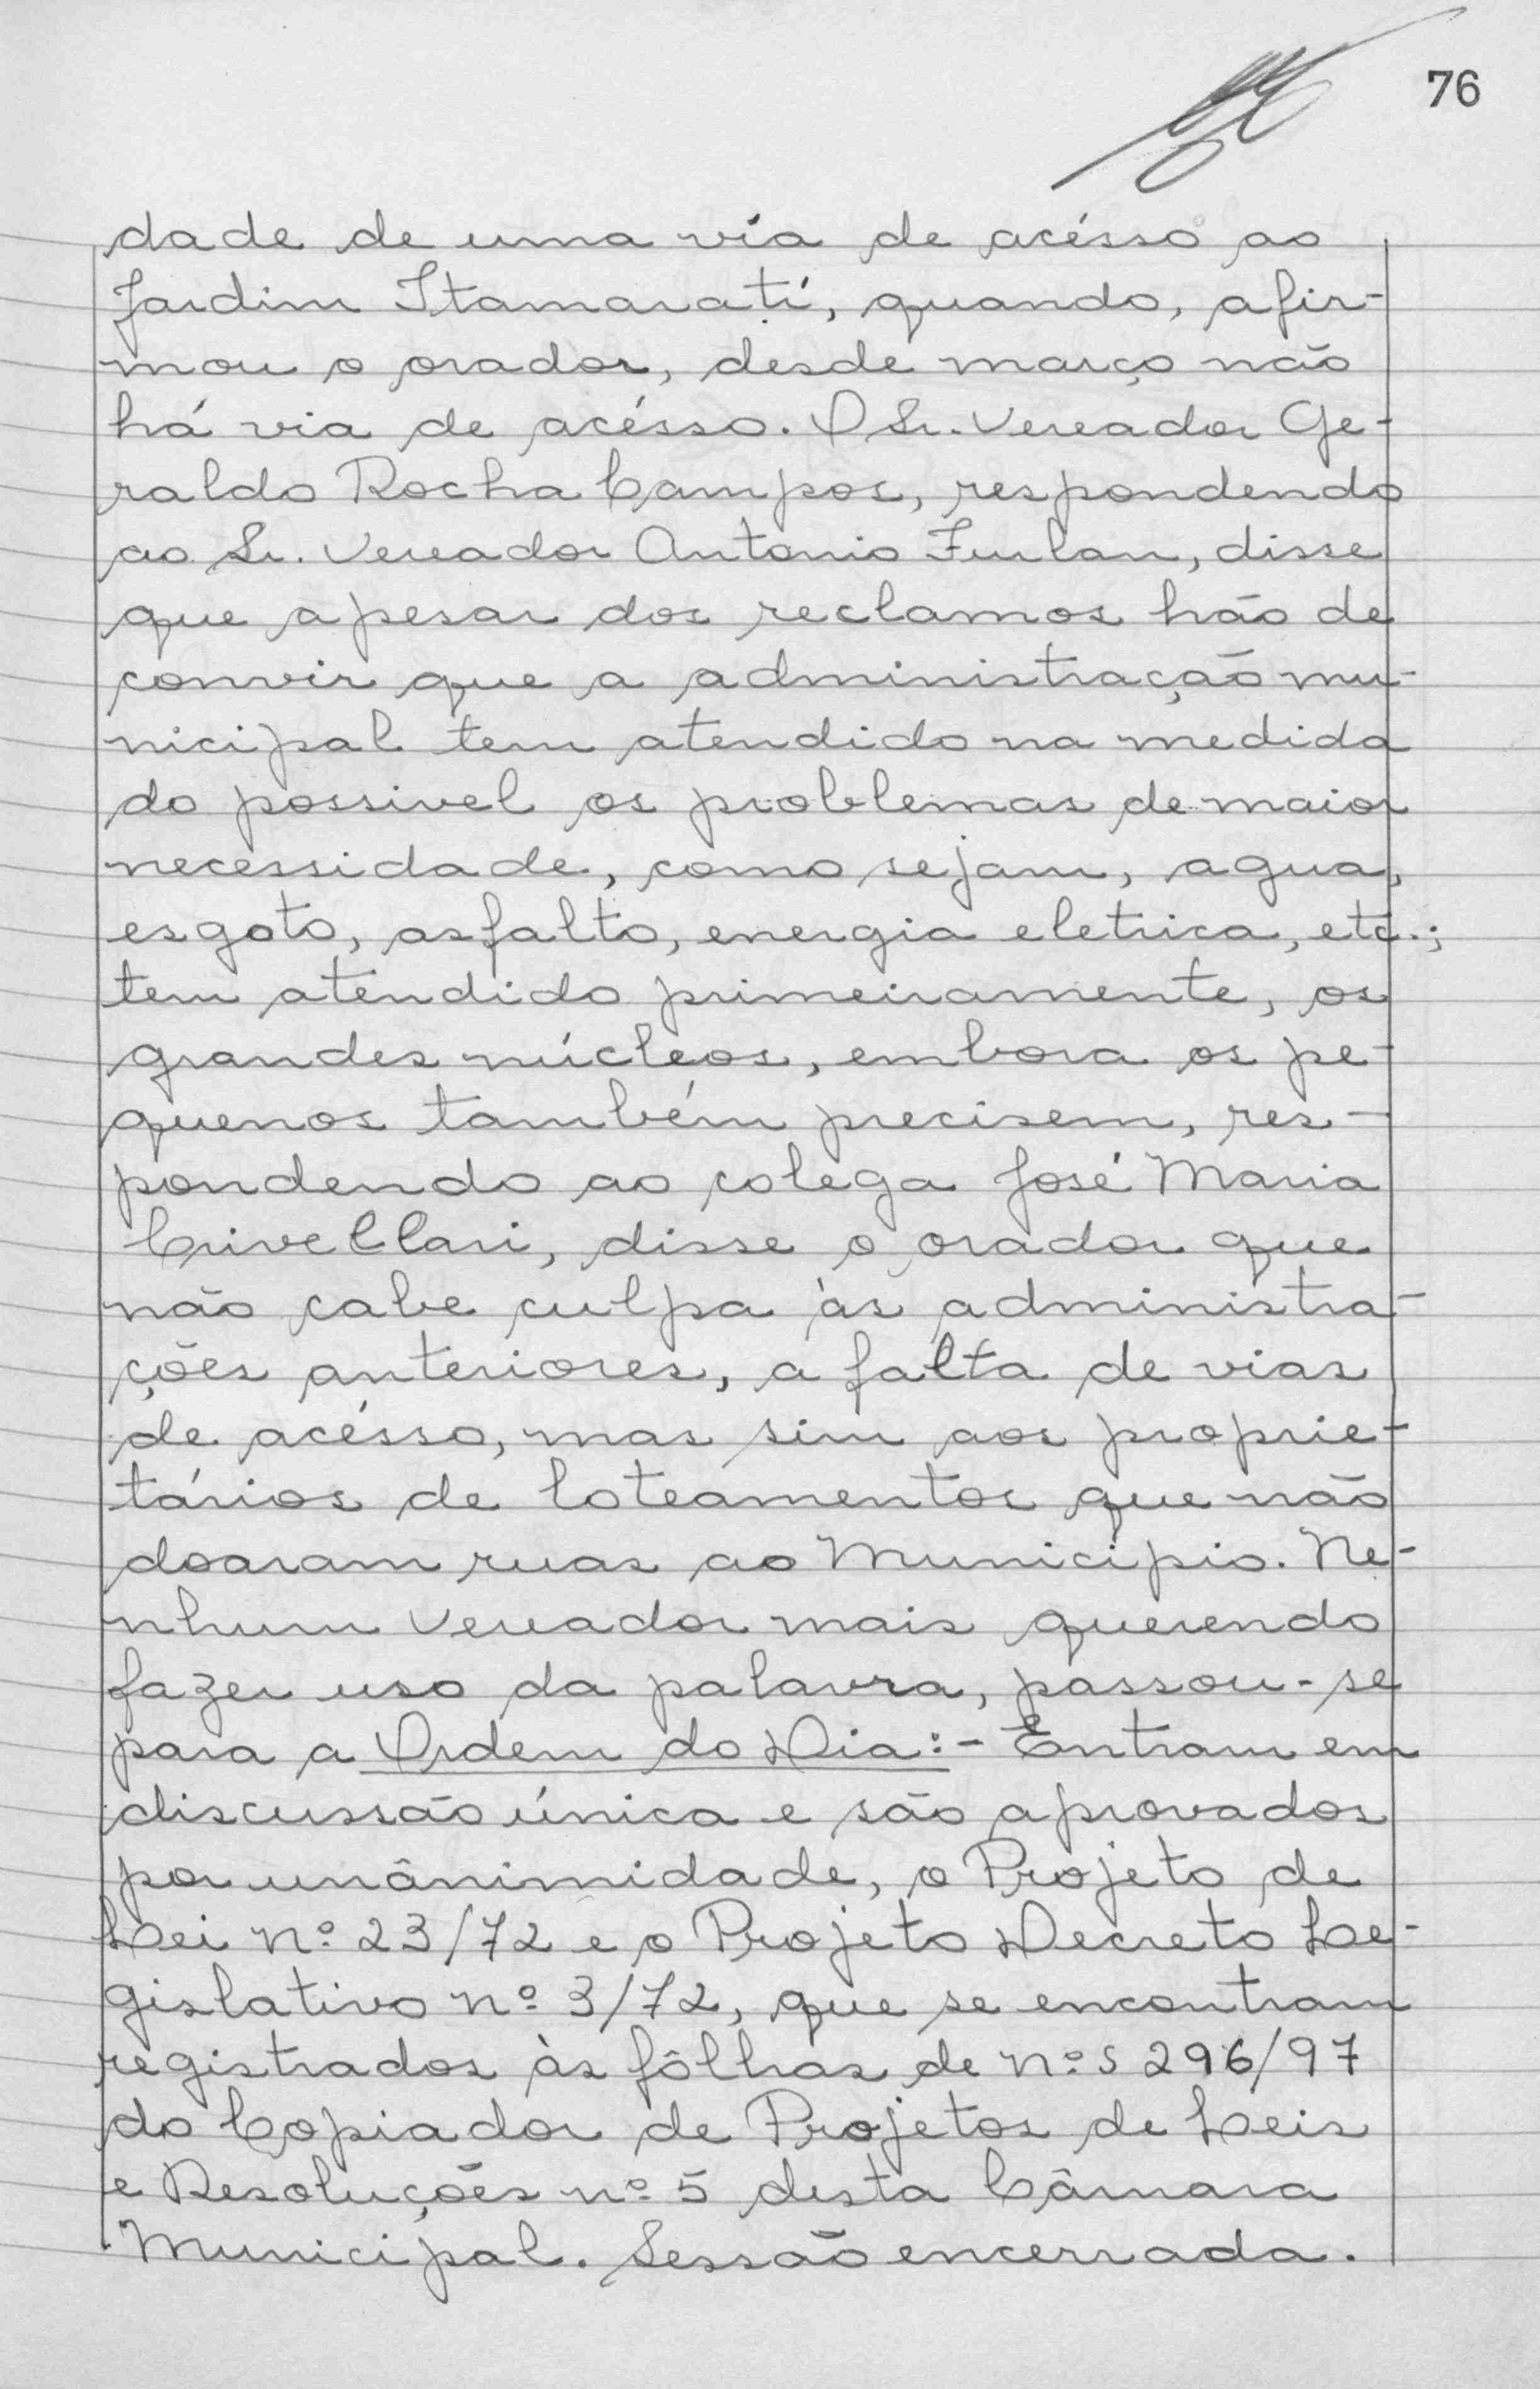 76
dade de uma via de acésso ao
Jardim Itamaratí, quando, afir-
mou o orador, desde março não
há via de acésso. O Sr. Vereador Ge-
raldo Rocha Campos, respondendo
ao Sr. Vereador Antonio Furlan, disse
que apesar dos reclamos hão de
convir que a administração mu-
nicipal tem atendido na medida
do possivel os problemas de maior
necessidade, como sejam, agua,
esgoto, asfalto, energia eletrica, etc.;
tem atendido primeiramente, os
grandes núcleos, embora os pe-
quenos também precisem, res-
pondendo ao colega José Maria
Crivellari, disse o orador que
não cabe culpa às administra-
ções anteriores, a falta de vias
de acésso, mas sim aos proprie-
tários de loteamentos que não
doaram ruas ao Municipio. Ne-
nhum Vereador mais querendo
fazer uso da palavra, passou-se
para a Ordem do Dia:- Entram em
discussão única e são aprovados
por unânimidade, o Projeto de
Lei nº 23/72 e o Projeto Decreto Le-
gislativo nº 3/72, que se encontram
registrados às fôlhas de nºs 296/97
do Copiador de Projetos de Leis
e Resoluções nº 5 desta Câmara
Municipal. Sessão encerrada.